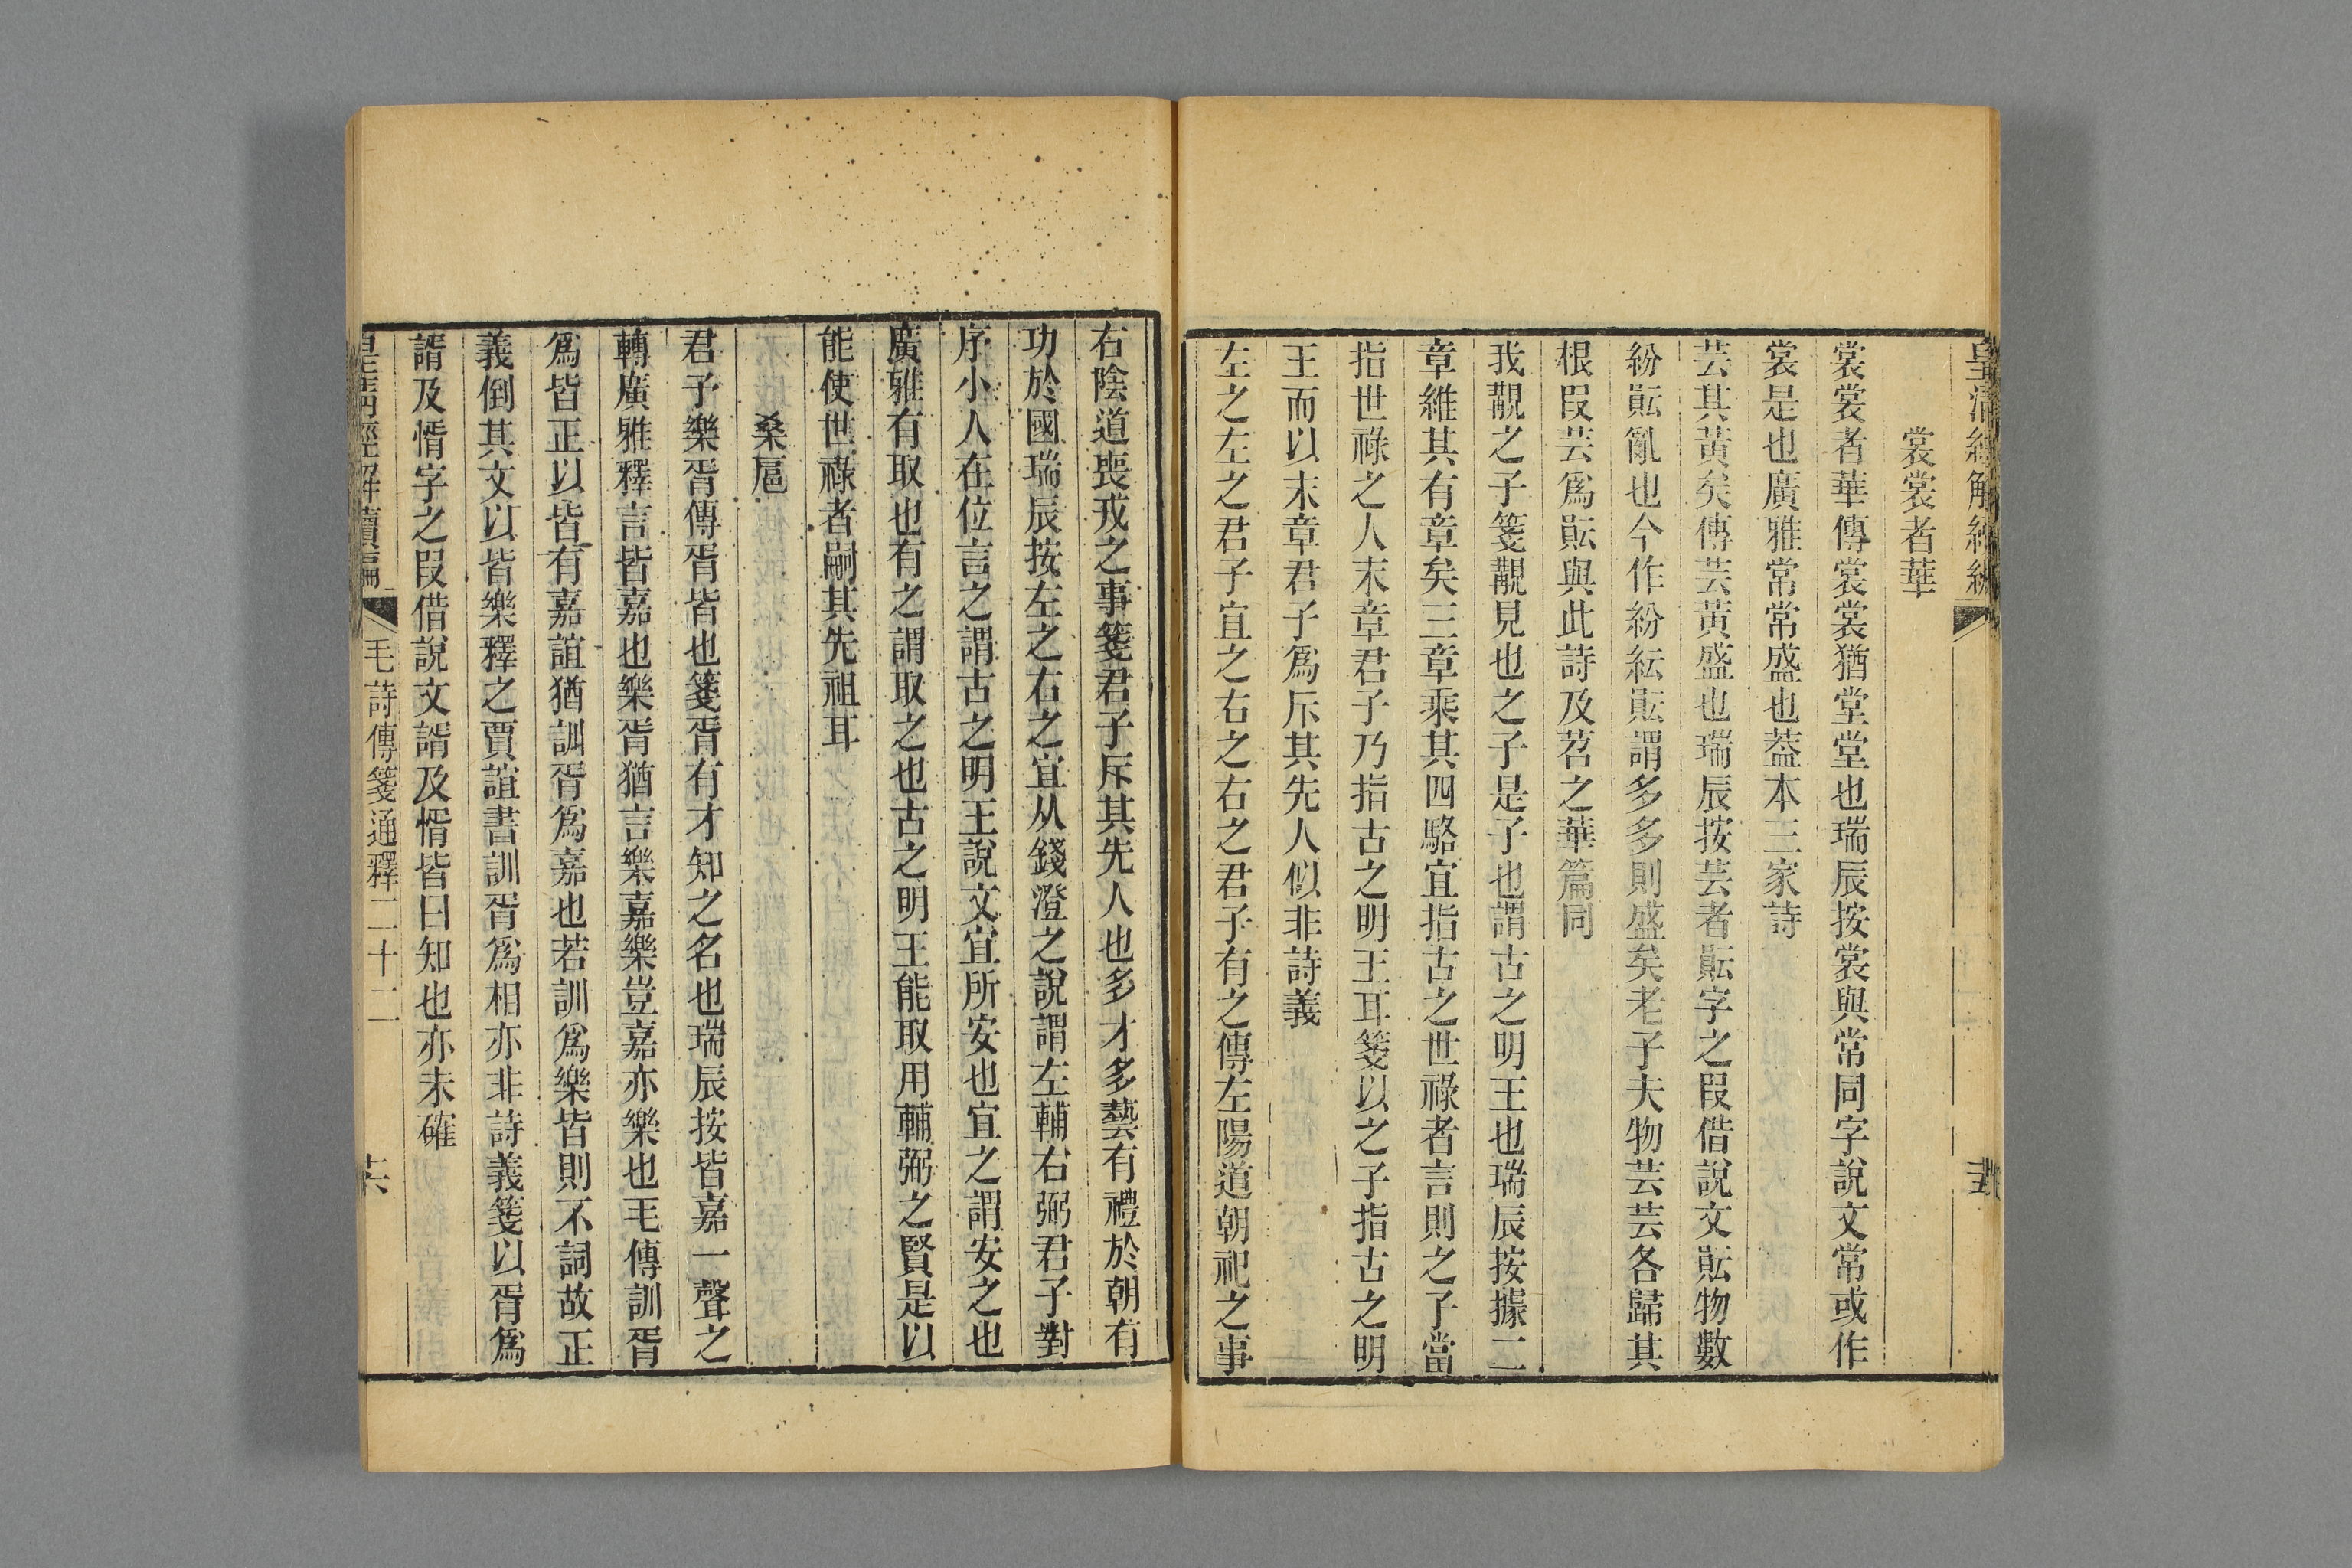 皇清經解續編
裳裳者華
裳裳者華傳裳裳猶堂堂也瑞辰按裳與常同字說文常或作
裳是也廣雅常常盛也葢本三家詩
芸其黃矣傳芸黃盛也瑞辰按芸者䫟字之叚借說文䫟物數
紛䫟亂也今作紛紜䫟謂多多則盛矣老子夫物芸芸各歸其
根叚芸爲䫟與此詩及苕之華篇同
我覯之子箋覯見也之子是子也謂古之明王也瑞辰按據二
章維其有章矣三章乘其四駱宜指古之世祿者言則之子當
指世祿之人末章君子乃指古之明王耳箋以之子指古之明
王而以末章君子爲斥其先人似非詩義
左之左之君子宜之右之右之君子有之傳左陽道朝祀之事
右陰道喪戎之事箋君子斥其先人也多才多藝有禮於朝有
功於國瑞辰按左之右之宜从錢澄之說謂左輔右弼君子對
序小人在位言之謂古之明王說文宜所安也宜之謂安之也
廣雅有取也有之謂取之也古之明王能取用輔弼之賢是以
能使世祿者嗣其先祖耳
桑扈
君子樂胥傳胥皆也箋胥有才知之名也瑞辰按皆嘉一聲之
轉廣雅釋言皆嘉也樂胥猶言樂嘉樂豈嘉亦樂也毛傳訓胥
爲皆正以皆有嘉誼猶訓胥爲嘉也若訓爲樂皆則不詞故正
義倒其文以皆樂釋之賈誼書訓胥爲相亦非詩義箋以胥爲
諝及惰字之叚借說文諝及惰皆曰知也亦未確
皇清經解續編
毛詩傳箋通釋二十二